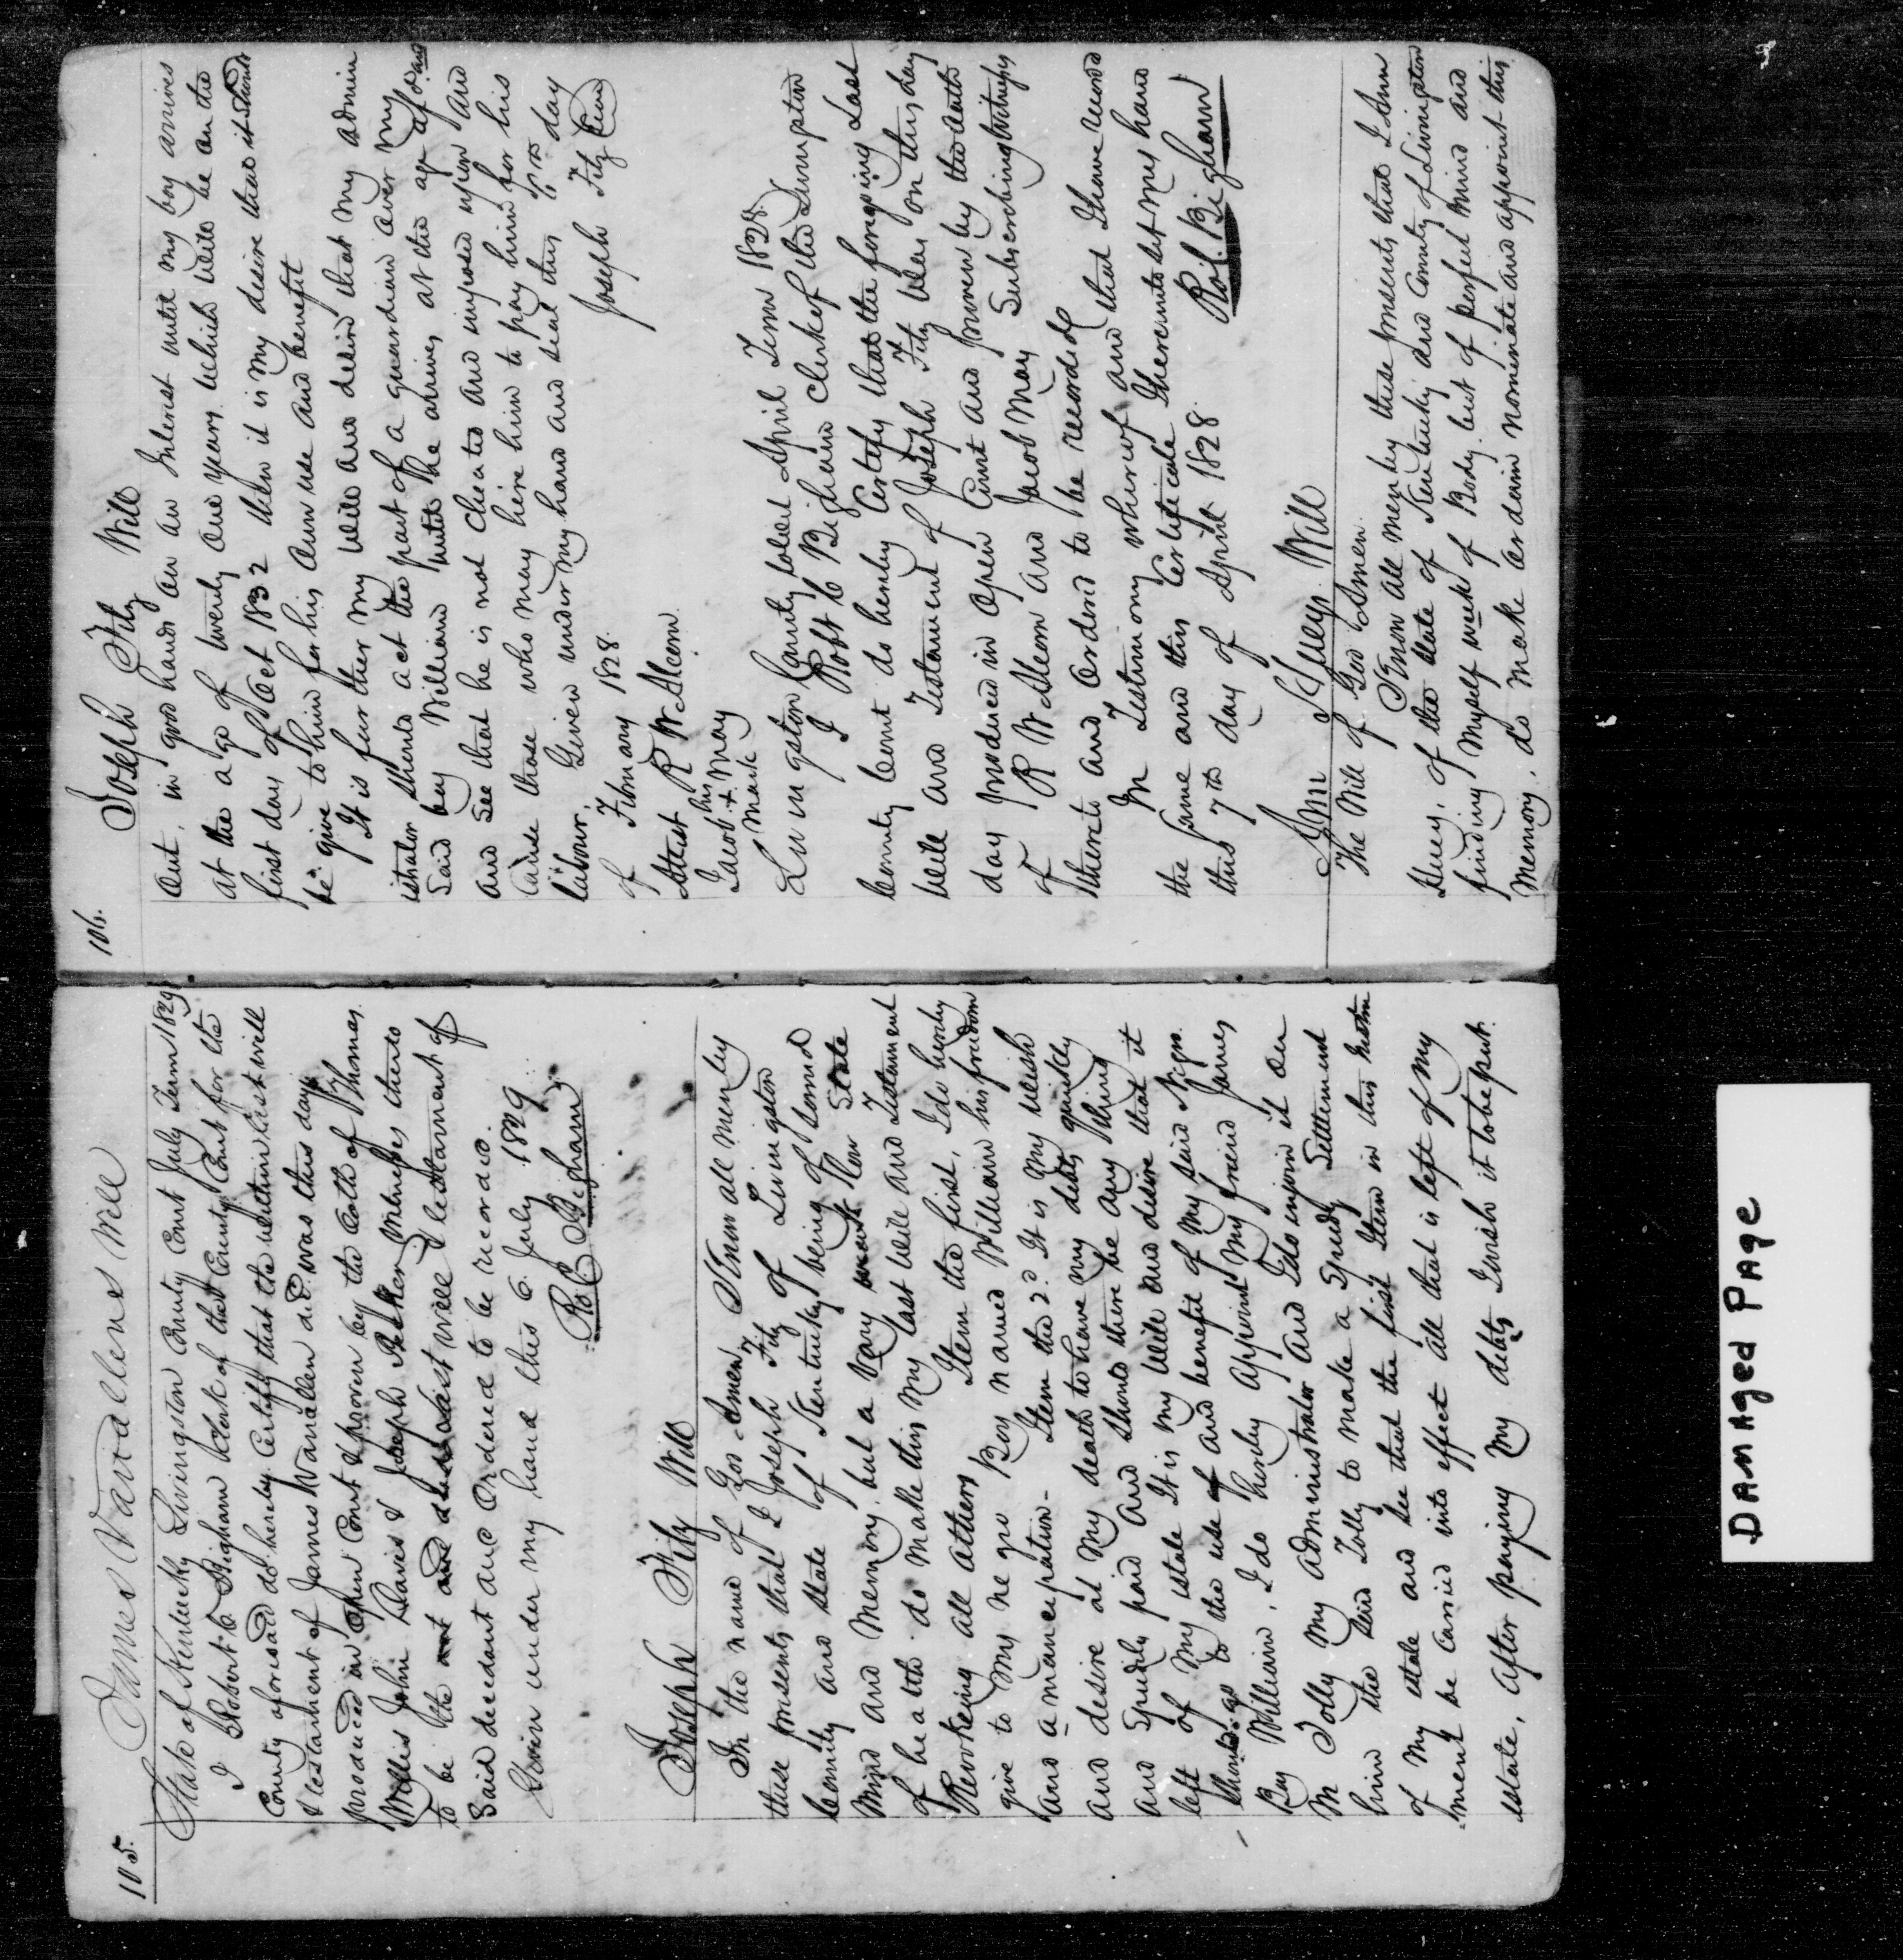 105.
James Vanallens Will
State of Kentucky Livingston County Court July Term 1829
I Robert C Bigham Clerk of the County Court for the
County aforesaid do hereby Certify that the within last will
& testament of James Vanallen decd. was this day
produced in open Court & proven by the oath of Thomas
Willis John Davis & Joseph Witnesses thereto
to be the last will & testament of
Said decedant and Ordered to be recorded.
Given under my hand this 6. July 1829
Ro C Bigham
Joseph Fitz Will
In the name of God Amen. Know all men by
these presents that I Joseph Fitz of Livingston
County and State of Kentucky being of Sound
Mind and Memory, but a Very weak State
of health do make this my last will and Testament
Revokeing all others Item the first, I do hereby
give to my negro Boy named William his freedom
and amancipation- Item the 2d. It is my wish
and desire at my death to have my debts quickly
and Spedily paid and should there be any thing
left of my estate It is my will and desire that it
should go to the use of and benefit of my said Negro
Boy William, I do hereby appoint my friend James
M Jolly my administrator and I do enjoin it on
him the said Jolly to make a Speedy Settlement
of my estate and see that the first Item in this instru
-ment be carried into effect all that is left of my
estate, after paying my debts I wish it to be put.
106.
Joseph Fitz Will
out, in good hands on an Interest until my boy arrives
at the age of twenty one years. which will be on the
first day of Oct 1832 then it is my desire that it should
be give to him for his own use and benefit
It is further my will and desire that my admin
istrator should act the part of a guardian over my
said boy William until he arrives at the age of
and See that he is not cheated and imposed upon and
cause those who may hire him to pay him for his
labour. Given under my hand and seal this day
of Febuary 1828.
Joseph Fitz Seal
Attest R W Steem
Jacob his + mark May
Livingston County towit April Term 1828
I Robt C Bigham Clerk of the Livingston
County Court do hereby Certify that the foregoing Last
Will and Testament of Joseph Fitz was on this day
day produced in open Court and proven by the oath
of R W Steem and Jacob May Subscribing Witnesses
thereto and ordered to be recorded
In Testimony whereof and that I have record
the same and this Certificate I hereunto set my hand
this 7th day of April 1828.
Rob. Bigham
Ann Hueys Will
The Will of God Amen.
Know all men by these presents that I Ann
Huey, of the State of Kentucky and County of Livingston
finding myself weak of Body, but of perfect mind and
Memory, do make ordain nominate and appoint this
DAMAGED PAGE